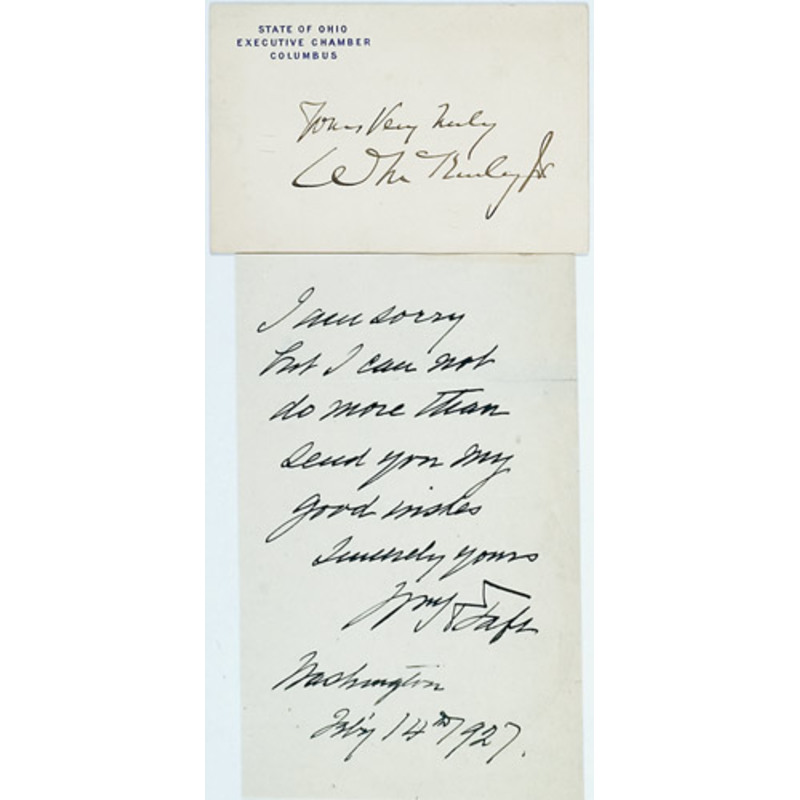 STATE OF OHIO
EXECUTIVE CHAMBER
COLUMBUS
Yours Very Truly
W McKinley Jr
I am sorry
but I can not
do more than
send you my
good wishes
Sincerely yours
Wm H Taft
Washington
Feb'y 14th 1927.